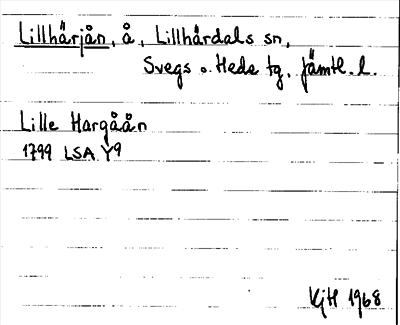 Lillhärjån, å, Lillhärdals sn,
Svegs o. Heds tg, Jämtl. l.
Lille Hargåån
1799 LSA Y9
KjH 1968